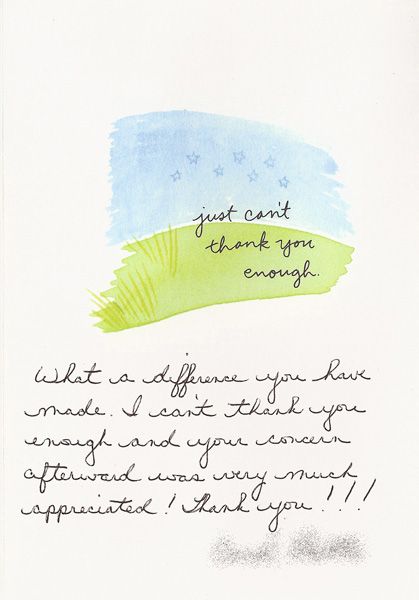 just can't
thank you
enough.
What a difference you have
made. I can't thank you
enough and your concern
afterward was very much
appreciated! Thank you!!!